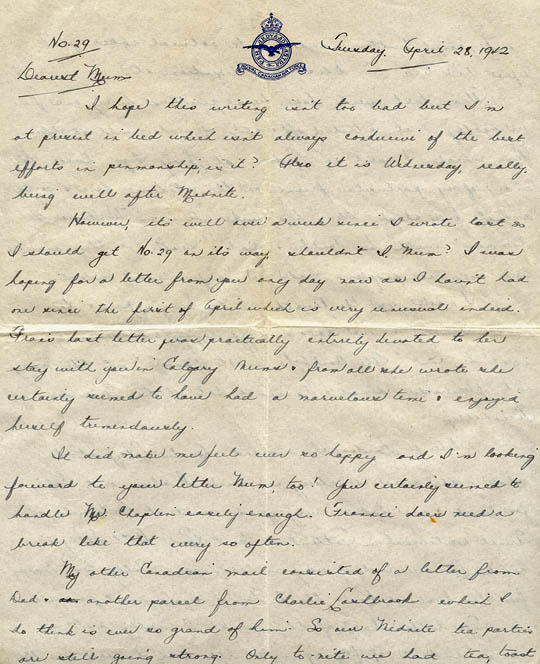 No. 29
Tuesday, April 28, 1942
ROYAL CANADIAN AIR FORCE
Dearest Mum
I hope this writing isn't too bad but I'm
at present in bed which isn't always conducivi of the best
efforts in penmanship, is it? Also it is Wednesday, really,
being well after Midnite.
However, it's well over a week since I wrote last so
I should get No. 29 on its way, shouldn't I, Mum? I was
hoping for a letter from you any day now as I haven't had
one since the first of April which is very unusual indeed.
last letter was practically entirely devoted to her
stay with you in Calgary Mums & from all she wrote she
certainly seemed to have had a marvelous time & enjoyed
herself tremendously.
It did make me feel ever so happy and I'm looking
forward to your letter Mum, too! You certainly seemed to
handle Mr. Chaplin easily enough. Frannie does need a
break like that every so often.
My other Canadian mail consisted of a letter from
Dad & another parcel from Charlie Cashbrook which I
do think is ever so grand of him. So our Midnite tea parties
are still going strong. Only to-nite we had tea, toast